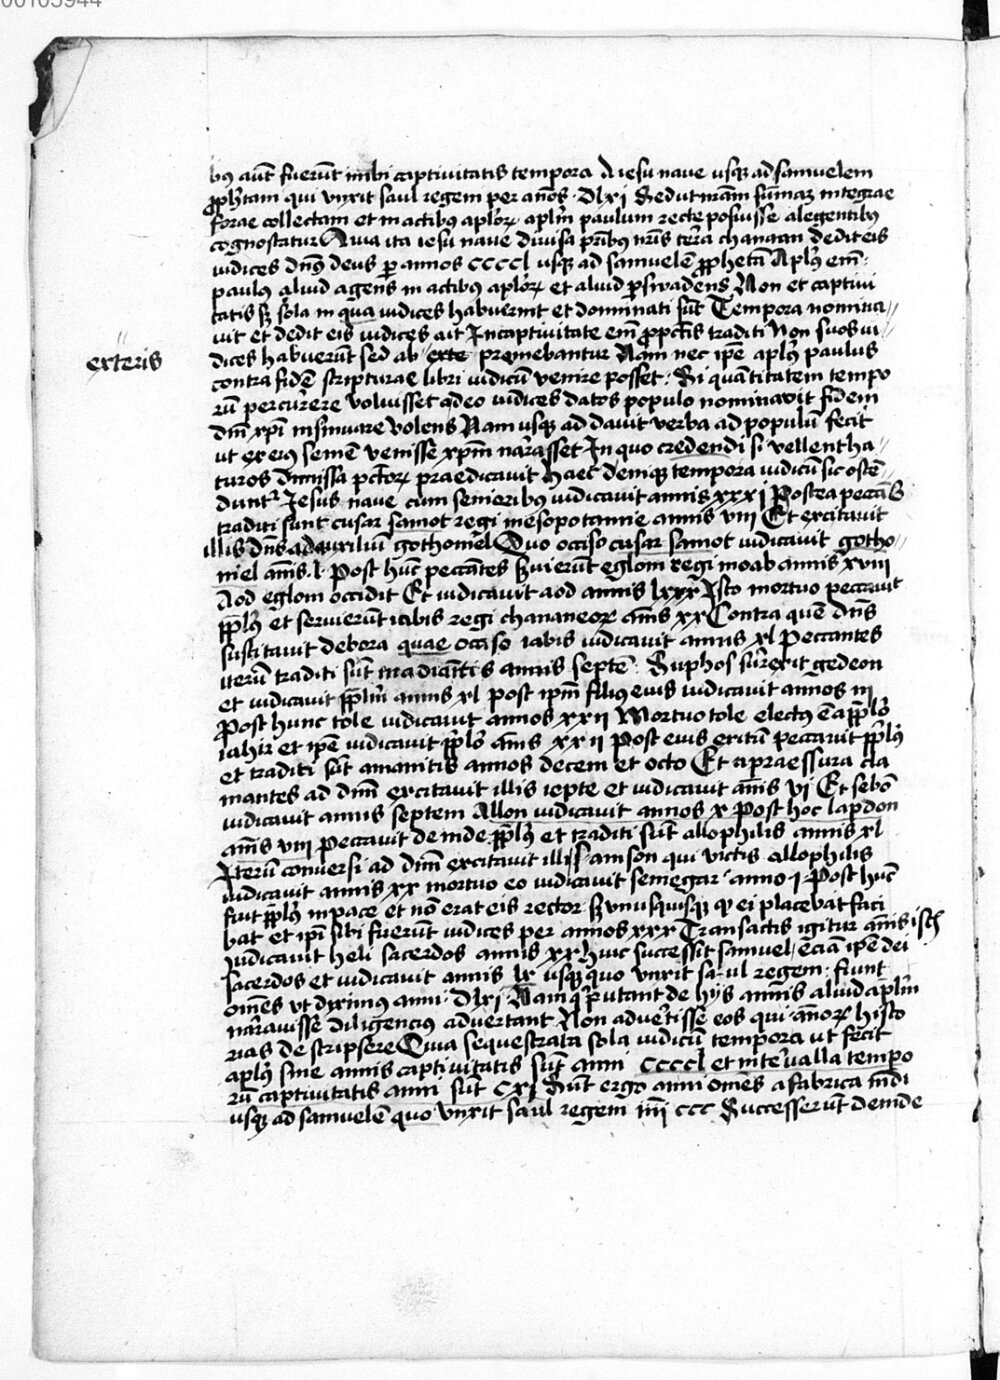 00105944
bꝯ aūt fuerūt imbi captivitatis tempora A iesu naue usqꝫ ad samuelem
ꝓph̄tam qui vnxit saul regem per an̄os · Dlxi Sed ut nr̄am sūmaꝫ integrae
forae collectam et in actibꝯ aplōꝝ aplm̄ paulum recte posuisse a legentibꝯ
cognoscatur Quia ita iesu naue diuisa pr̄ibꝯ nr̄is terra chanaan dedit eis
iudices dn̄s deus ꝑ annos ccccl usqꝫ ad samuelē ꝓphetā Aplꝯ em̄
paulꝯ aliud agens in actibꝯ aplōꝝ et aliud ꝑswadens Non et captiui
tatis sꝫ sola in qua iudices habuerint et dominati sūt Tempora nomina〃
uit et dedit eis iudices ait In captiuitate em̄ ꝓ pctīs traditi Non suos iu〃
exteris
dices habuerūt sed ab 〃exte premebantur Nam nec ip̄e aplꝯ paulus
contra fidē scripturae libri iudicū venire posset · Si quātitatem tempo
rū percurrere voluisset qdeo iudices datos populo nominauit fidem
dn̄i xp̄i insinuare volens Nam usqꝫ ad dauit verba ad populū fecit
ut ex eiꝯ semē venisse xp̄m narrasset In quo credendi si vellent ha〃
turos dimissa pctōꝝ praedicauit Haec deniqꝫ tempora iudicū sic ostē〃
dunt² Iesus naue cum senioribꝯ iudicauit annis xxxi Postea peccātes
traditi sunt cusar samot regi mesopotannie annis viii Et excitauit
illis dn̄s ad auxiliū gothoniel Quo occiso cusar samot iudicauit gotho〃
niel an̄is · l · Post huc peccātes s̄uierūt eglom regi moab annis xviii
Aod eglom occidit Et iudicauit aod annis lxxx Isto mortuo peccauit
pp̄lꝯ et seruierūt iabis regi chananeoꝝ an̄is xx Contra quē dn̄s
suscitauit debora quae occiso iabis iudicauit annis xl Peccantes
iterū traditi sūt madiantis annis septē · Suphos surrexit gedeon
et iudicauit pp̄lm̄ annis xl post ip̄m filiꝯ eius iudicauit annos iii
Post hunc tole iudicauit annos xxii Mortuo tole electꝯ ē a pp̄lo
iahir et ip̄e iudicauit pp̄lo an̄is xxii Post eius exitū peccauit pp̄lꝯ
et traditi sūt amanitis annos decem et octo Et a praessura cla
mantes ad dn̄m excitauit illis iepte et iudicauit an̄is vi Et sebō
iudicauit annis septem Allon iudicauit annos x Post hoc lapdon
an̄is viii Peccauit deinde pp̄lꝯ et traditi sūt allophilis annis xl
Iterū conuersi ad dn̄m excitauit illis samson qui victis allophilis
iudicauit annis xx mortuo eo iudicauit semegar · anno i Post huc
fuit pp̄lꝯ in pace et nō erat eis rector sꝫ vnusquisqꝫ qd ei placebat faci
bat et ip̄i sibi fuerūt iudices per annos xxx Transactis igitur an̄is isti
iudicauit heli sacerdos annis xx huic successit samuel eciā ip̄e dei
sacerdos et iudicauit annis lx usqꝫ quo vnxit saul regem · fiunt
omēs vt diximus anni · Dlxi · Nam q̄ putant de hijs annis aliud aplm̄
narrauisse diligenciꝯ aduertant Non aduertisse eos qui · an̄oꝝ histo
rias descripsere Quia sequestrata sola iudicū tempora ut fecit
aplꝯ sine annis captiuitatis sūt anni ccccl et interualla tempo
rū captiuitatis anni sūt cxi Sūt ergo anni omēs a fabrica mūdi
usqꝫ ad samuelē quo vnxit saul regem iiii ccc Successerūt deinde